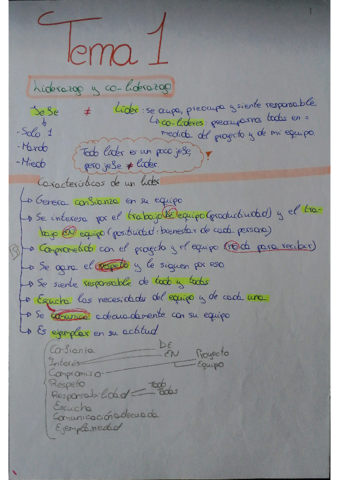 1
Tema 1
Liderazgo y co-liderazgo
JeSe ≠ Líder: se ocupa, preocupa y siente responsable
↳ co-líderes: preocuparnos todos en =
- Solo 1 medida del proyecto y de mi equipo
- Mando
- Miedo
Todo líder es un poco jeSe,
pero jeSe ≠ líder.
Características de un líder
↳ Genera conSianza en su equipo
↳ Se interesa por el trabajo de equipo (productividad) y el tra-
bajo en equipo (positividad: bienestar de cada persona)
↳ Comprometido con el proyecto y el equipo (no da para recibir)
↳ Se gana el respeto y le siguen por eso
↳ Se siente responsable de todo y todos
↳ Escucha las necesidades del equipo y de cada uno
↳ Se comunica adecuadamente con su equipo
↳ Es ejemplar en su actitud
ConSianza DE
Interés EN Proyecto
Compromiso Equipo
Respeto
Responsabilidad Todo
todos
Escucha
Comunicación adecuada
Ejemplaridad